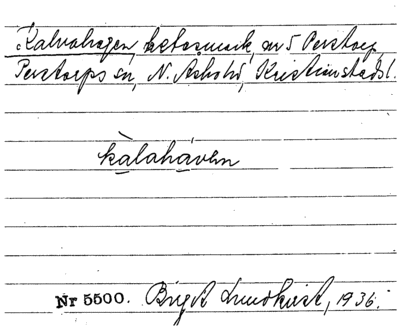 Kalvahagen, betesmark, nr 5 Perstorp,
Perstorps sn, N. Åsbohd, Kristianstads l.
kàlahávен
Nr 5500. Birgit Lundkvist, 1936.